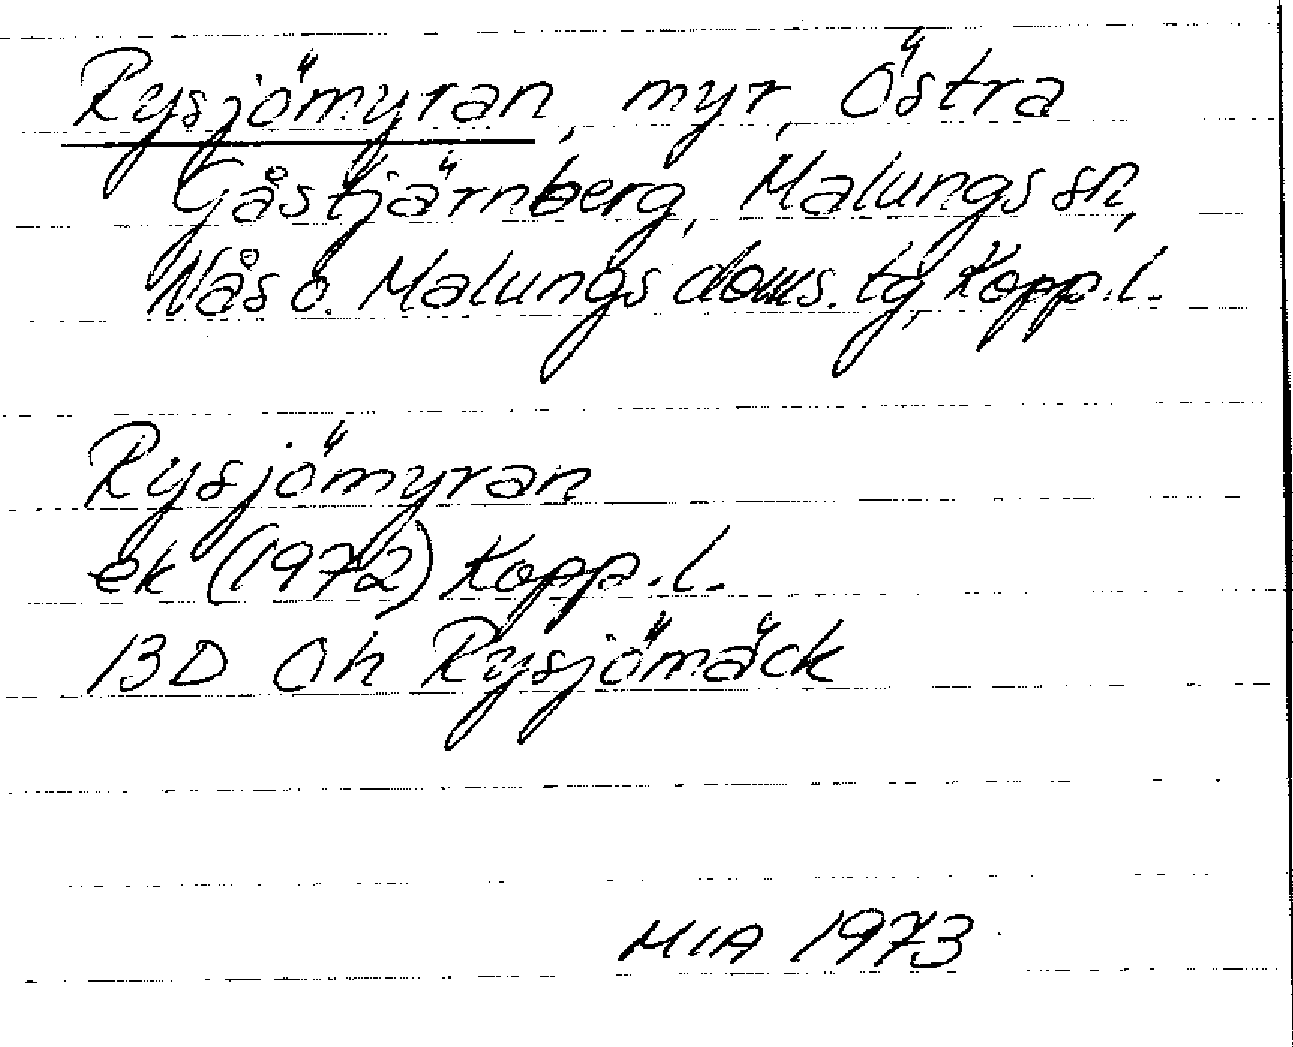 Rysjömyran, myr, Östra
Gåstjärnberg, Malungs sn,
Nås o. Malungs doms. tg, Kopp. l.
Rysjömyran
ek (1972) Kopp. l.
13D 0h Rysjömäck
MIA 1973